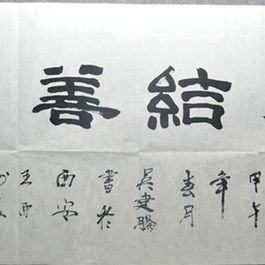 結善
甲午
年
春月
吳建勝
書於
西安